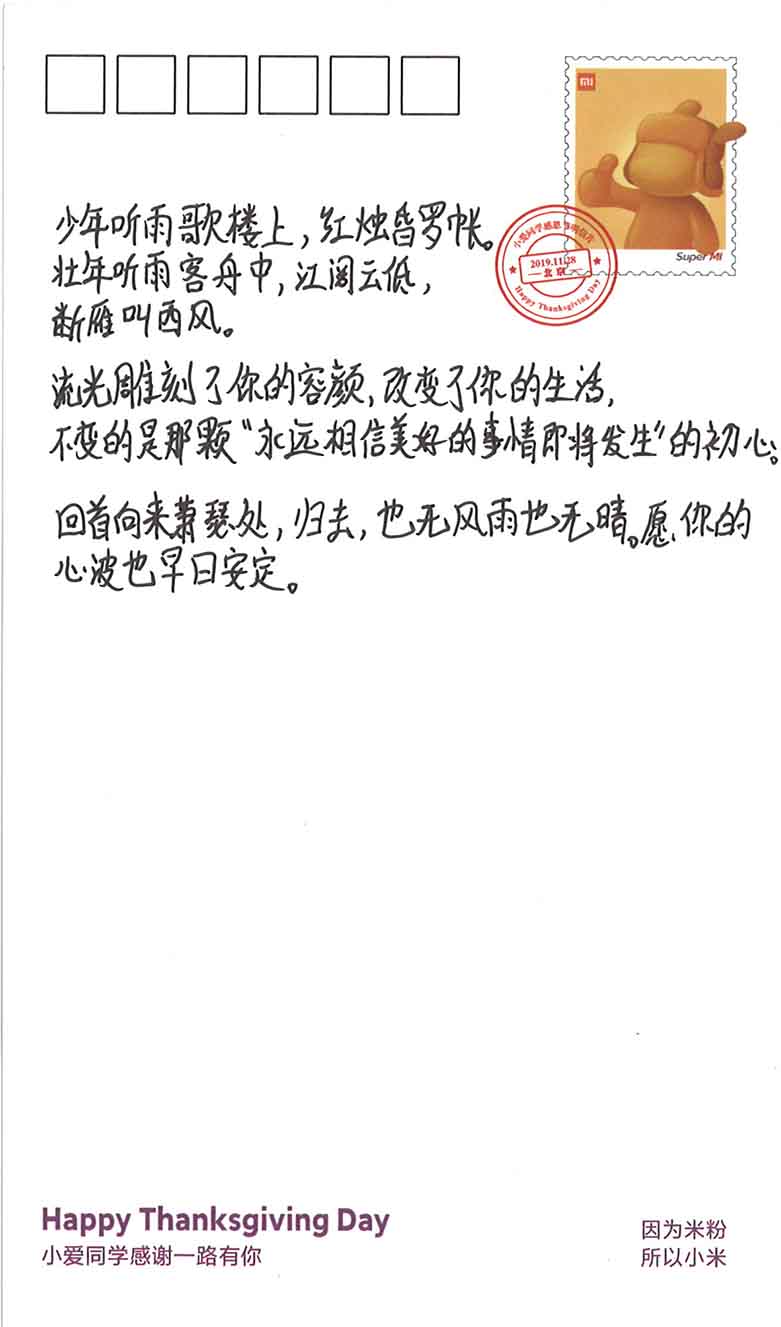 MI
Super MI
小爱同学感恩节明信片
2019.11.28
北京
Happy Thanksgiving Day
少年听雨歌楼上，红烛昏罗帐。
壮年听雨客舟中，江阔云低，
断雁叫西风。
流光雕刻了你的容颜，改变了你的生活，
不变的是那颗“永远相信美好的事情即将发生”的初心。
回首向来萧瑟处，归去，也无风雨也无晴。愿你的
心波也早日安定。
Happy Thanksgiving Day
小爱同学感谢一路有你
因为米粉
所以小米